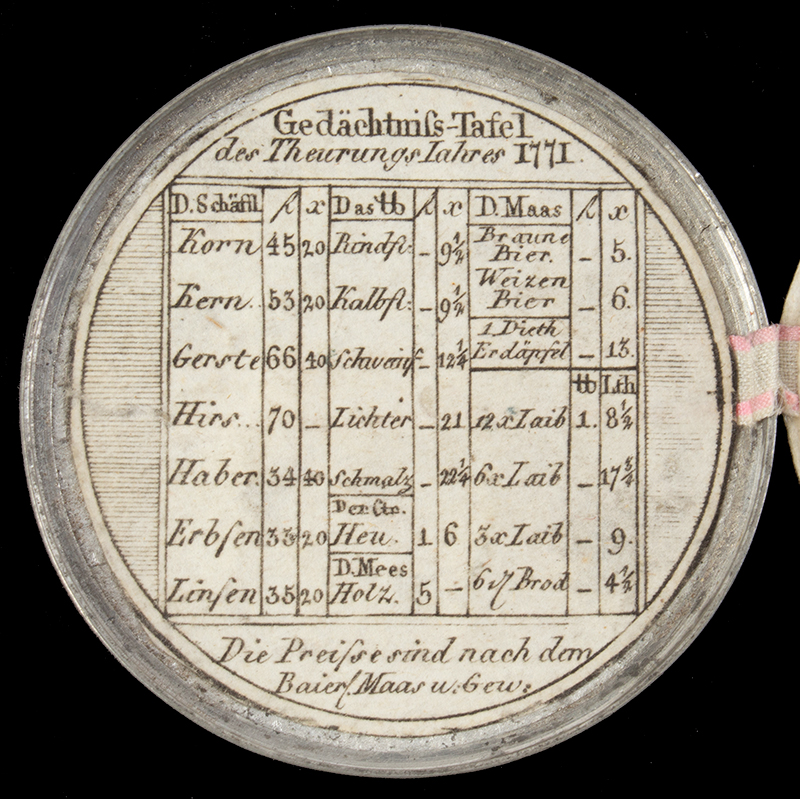 Gedächtniſs-Tafel
des Theurungs Iahres 1771.
D. Schäffl. fl x Das ℔ fl x D. Maas fl x
Korn 45 20 Rindfl: – 9½ Braune Bier. – 5.
Kern. 53 20 Kalbfl: – 9½ Weizen Bier – 6.
Gerste 66 40 Schweinf – 12¼ 1. Dieth Erdäpfel – 13.
℔ Lth
Hirs... 70 – Lichter – 21 12 x Laib 1. 8½
Haber. 34 40 Schmalz – 22¼ 6 x Laib – 17¾
Der Ctr.
Erbſen 33 20 Heu. 1 6 3 x Laib – 9.
D. Mees
Linſen 35 20 Holz. 5 – 6 Brod – 4½
Die Preiſse sind nach dem
Baierſ. Maas u: Gew: